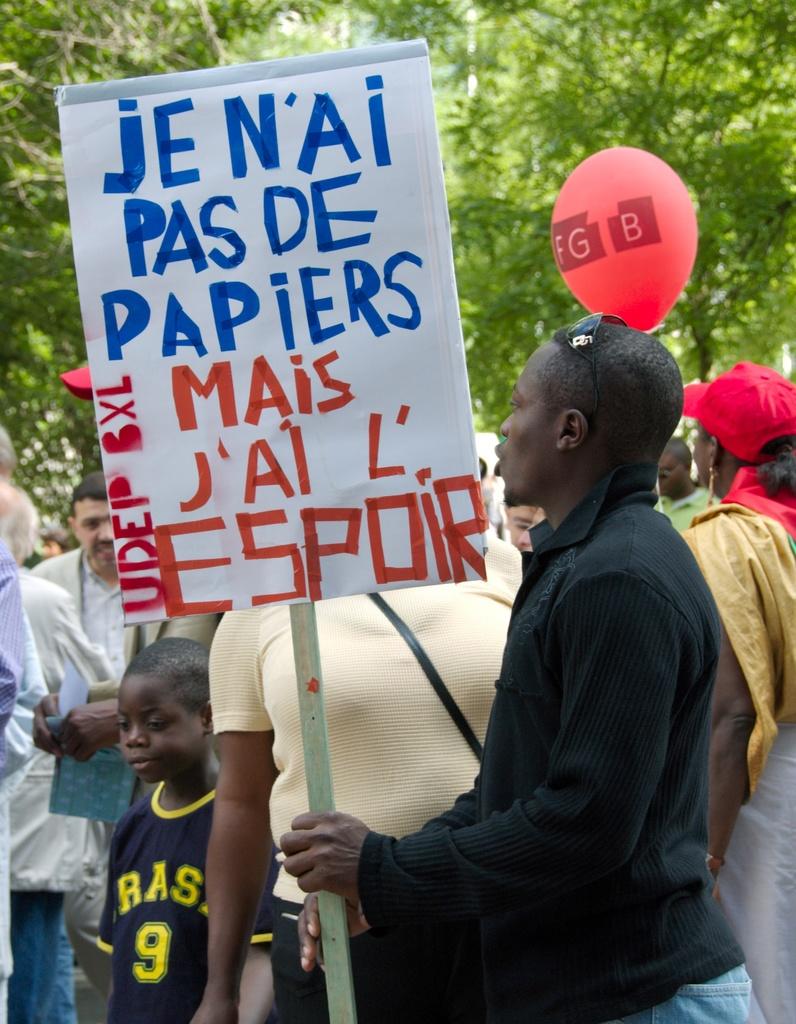 JE N'AI
PAS DE
PAPIERS
MAIS
J'AI L'
ESPOIR
UDEP BXL
FG B
RAS
9